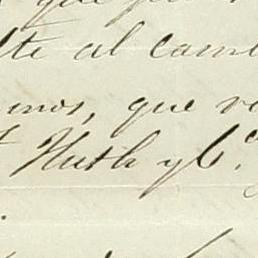 que
te al camb
mos, que re
Huth y C.ª